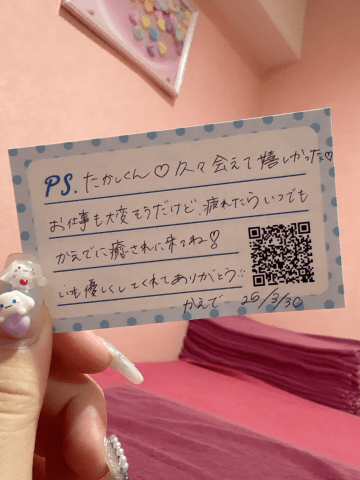 PS. たかしくん♡久々会えて嬉しかった♡
お仕事も大変そうだけど、疲れたらいつでも
かえでに癒されに来てね!
いも優しくしてくれてありがとう!!
かえで 25/3/30